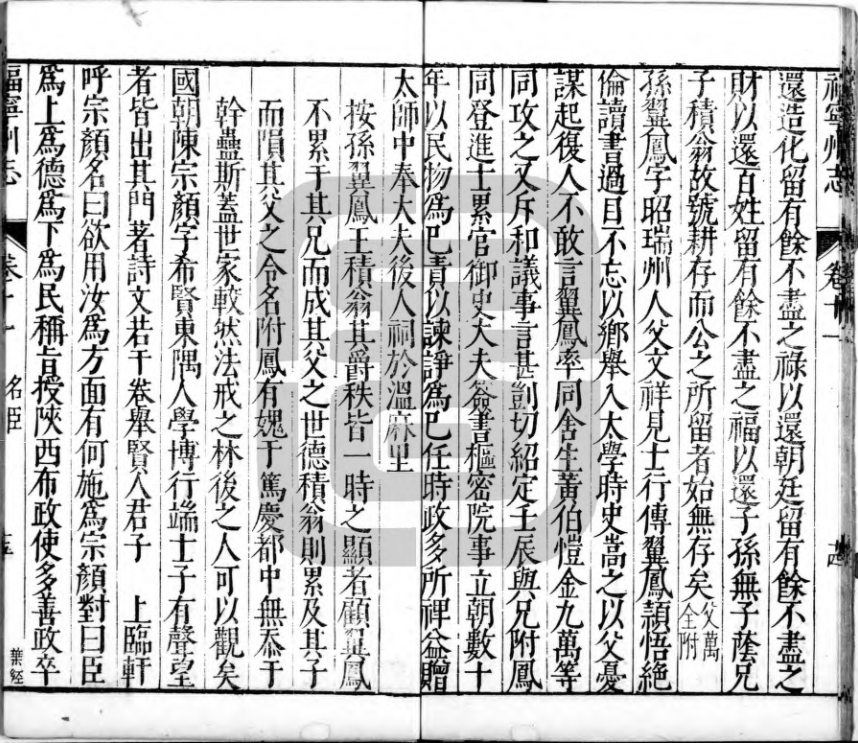 福寧州志 卷十一 十四
還造化留有餘不盡之祿以還朝廷留有餘不盡之
財以還百姓留有餘不盡之福以還子孫無子蔭兄
子積翁故號耕存而公之所留者始無存矣父萬全附
孫翼鳳字昭瑞州人父文祥見士行傳翼鳳頴悟絕
倫讀書過目不忘以鄉舉入太學時史嵩之以父憂
謀起復人不敢言翼鳳率同舍生黃伯愷金九萬等
同攻之又斥和議事言甚剴切紹定壬辰與兄附鳳
同登進士累官御史大夫簽書樞密院事立朝數十
年以民物為巳責以諫諍為巳任時政多所裨益贈
太師中奉大夫後人祠於溫麻里
按孫翼鳳王積翁其爵秩皆一時之顯者顧翼鳳
不累于其兄而成其父之世德積翁則累及其子
而隕其父之令名附鳳有媿于篤慶都中無忝于
幹蠱斯蓋世家較然法戒之林後之人可以觀矣
國朝陳宗顏字希賢東隅人學博行端士子有聲望
者皆出其門著詩文若干卷舉賢人君子 上臨軒
呼宗顏名曰欲用汝為方面有何施為宗顏對曰臣
為上為德為下為民稱旨授陝西布政使多善政卒
福寧州志 名臣